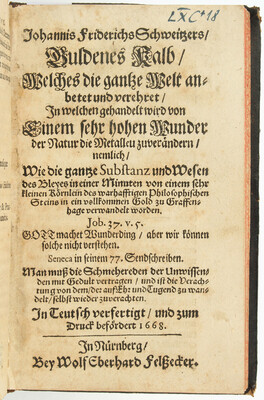 LXC*18
Johannis Friderichs Schweitzers/
Guldenes Kalb/
Welches die gantze Welt an-
betet und verehret/
In welchen gehandelt wird von
Einem sehr hohen Wunder
der Natur die Metallen zuverändern/
nemlich/
Wie die gantze Substanz und Wesen
des Bleyes in einer Minuten von einem sehr
kleinen Körnlein des warhafftigen Philosophischen
Steins in ein vollkommen Gold zu Graffen-
hage verwandelt worden.
Job. 37. v. 5.
GOTT machet Wunderding/ aber wir können
solche nicht verstehen.
Seneca in seinem 77. Sendschreiben.
Man muß die Schmehereden der Unwissen-
den mit Gedult vertragen/ und ist die Verach-
tung von dem/ der auf Ehr und Tugend zu wan-
delt/ selbst wieder zuverachten.
In Teutsch verfertigt/ und zum
Druck befördert 1668.
In Nürnberg/
Bey Wolf Eberhard Felßecker.